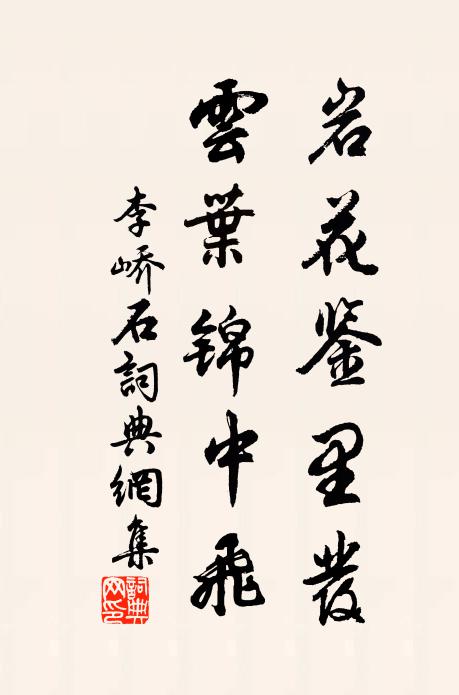 岩花鉴里發
雲葉錦中飛
李嶠石詞典網集
詞典網印